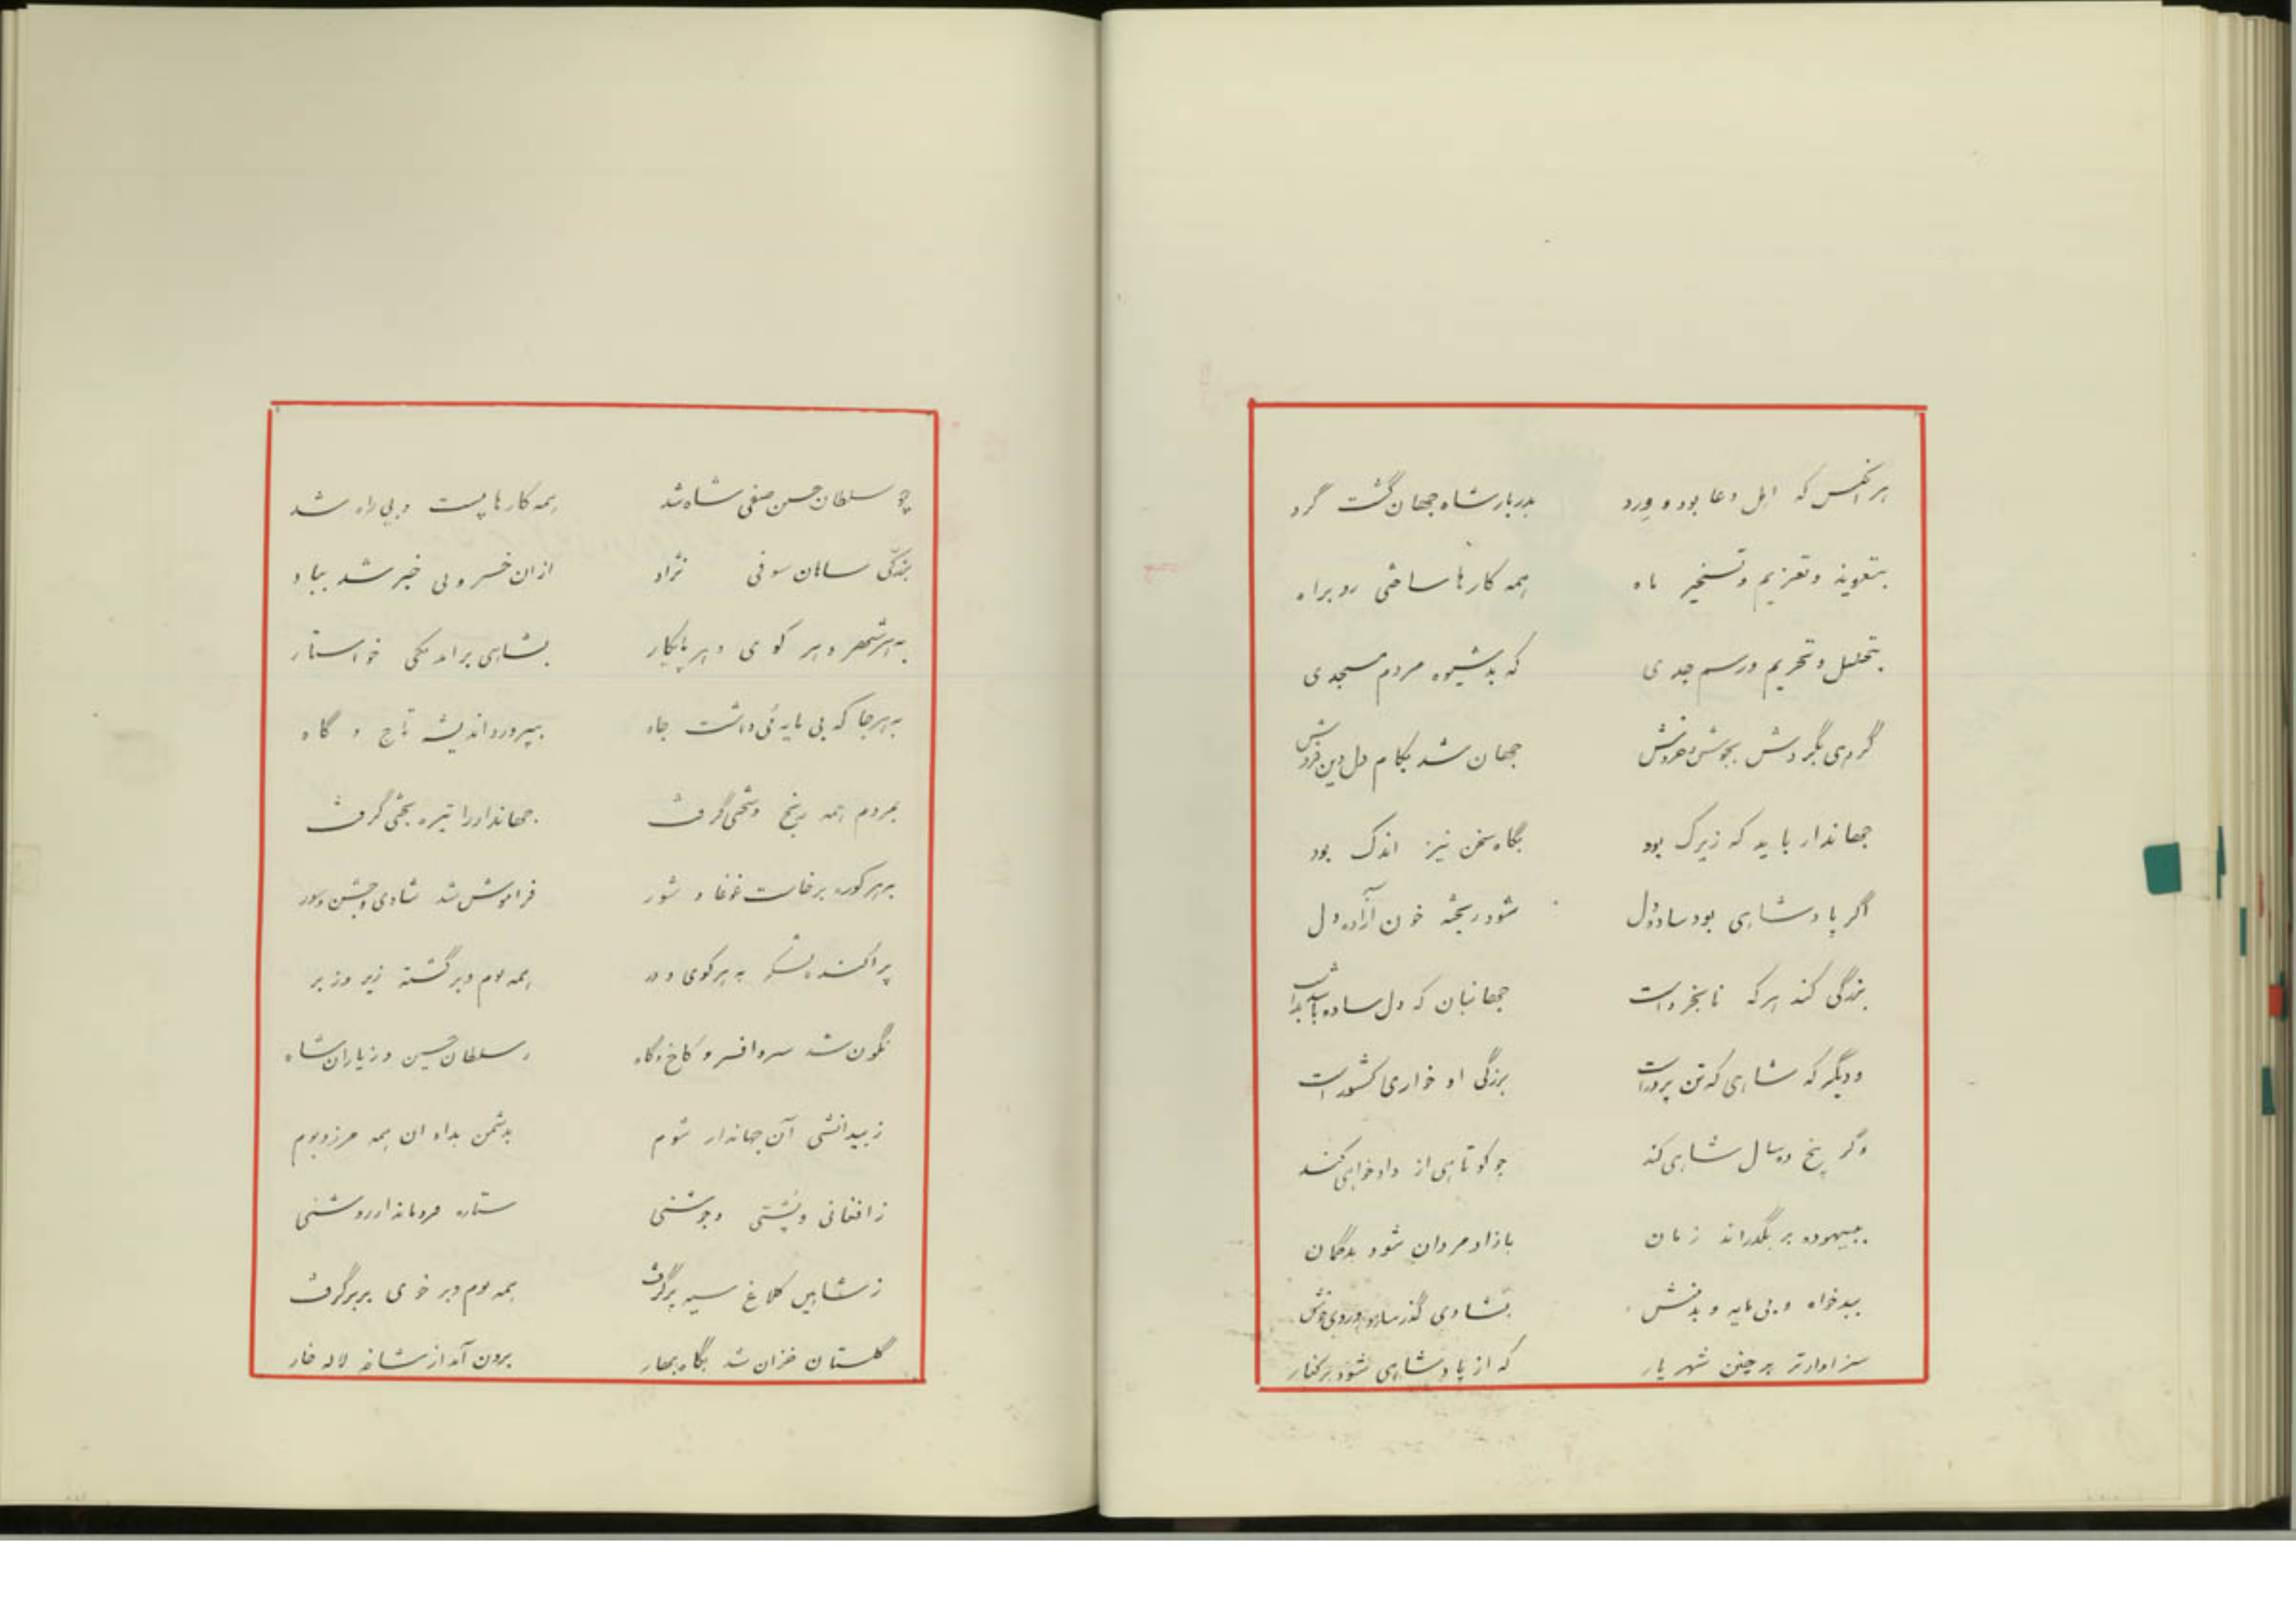 هر آنکس که اهل دعا بود و ورد بدربار شاه جهان گشت گرد
بتعویذ و تعزیم و تسخیر ماه همه کارها ساختی رو براه
بتحلیل و تحریم و رسم جدی که بد شیوه مردم مسجدی
گروهی بگردش بجوش و خروش جهان شد بکام دل دین فروش
جهاندار باید که زیرک بود بگاه سخن نیز اندک بود
اگر پادشاهی بود ساده دل شود ریخته خون آزاده دل
بزرگی کند هر که نابخرد است جهانبان که دل ساده باشد بد است
و دیگر که شاهی که تن پرور است بزرگی او خواری کشور است
وگر پنج ده سال شاهی کند چو کوتاهی از دادخواهی کند
ببیهوده بر بگذراند زمان بازاد مردان شود بدگمان
ببدخواه و بی مایه و بدمنش بشادی گذر سازد و
سزاوارتر بر چنین شهریار که از پادشاهی شود برکنار
چو سلطان حسن صفی شاه شد همه کارها پست و بی راه شد
بزرگی ساسان سوفی نژاد ازان خسرو بی خبر شد بباد
به هر شهر و هر کوی و هر پایکار بشاهی برآمد یکی خواستار
به هر جا که بی مایه ئی داشت جاه بپرورد اندیشه تاج و گاه
بمردم همه رنج و سختی گرفت جهاندار را تیره بختی گرفت
بهر کوره برخاست غوغا و شور فراموش شد شادی و جشن و سور
پراکنده به هر کوی و در همه بوم و بر گشته زیر و زبر
نگون شد سر و افسر و کاخ و گاه ز سلطان حسین و ز یاران شاه
ز بیدانشی آن جهاندار شوم بدشمن بداد ان همه مرز و بوم
ز افغانی و پشتی و جوشنی ستاره فروماند از روشنی
ز شاهین کلاغ سیه پر گرفت همه بوم و بر خوی بربر گرفت
گلستان خزان شد بگاه بهار برون آمد از شاخه لاله خار